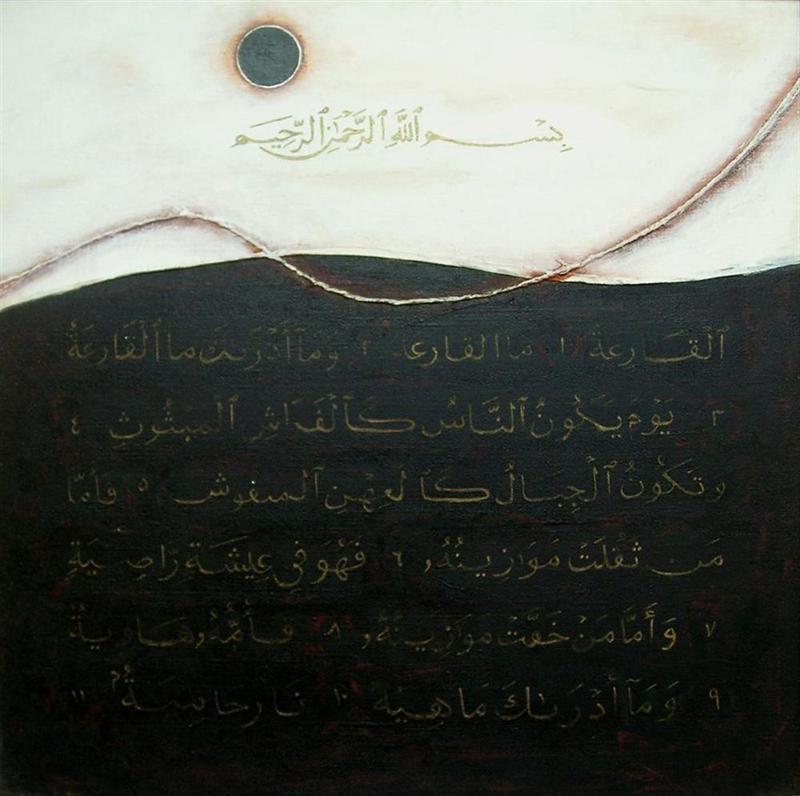 بِسْمِ ٱللَّهِ ٱلرَّحْمَٰنِ ٱلرَّحِيمِ
ٱلْقَارِعَةُ ١ ما القارعة ٢ وما أَدْرَىٰكَ ما ٱلْقَارِعَةُ
٣ يَوْمَ يَكُونُ ٱلنَّاسُ كَٱلْفَرَاشِ ٱلْمَبْثُوثِ ٤
وتَكُونُ ٱلْجِبَالُ كَٱلْعِهْنِ ٱلْمنفوش ٥ فَأَمَّا
مَن ثَقُلَتْ مَوَٰزِينُهُۥ ٦ فَهُوَ فِي عِيشَةٍ رَّاضِيَةٍ
٧ وَأَمَّا مَنْ خَفَّتْ موَٰزِينُهُۥ ٨ فَأُمُّهُۥ هَاوِيَةٌ
٩ وَمَآ أَدْرَىٰكَ مَا هِيَهْ ١٠ نَارٌ حَامِيَةٌ ١١